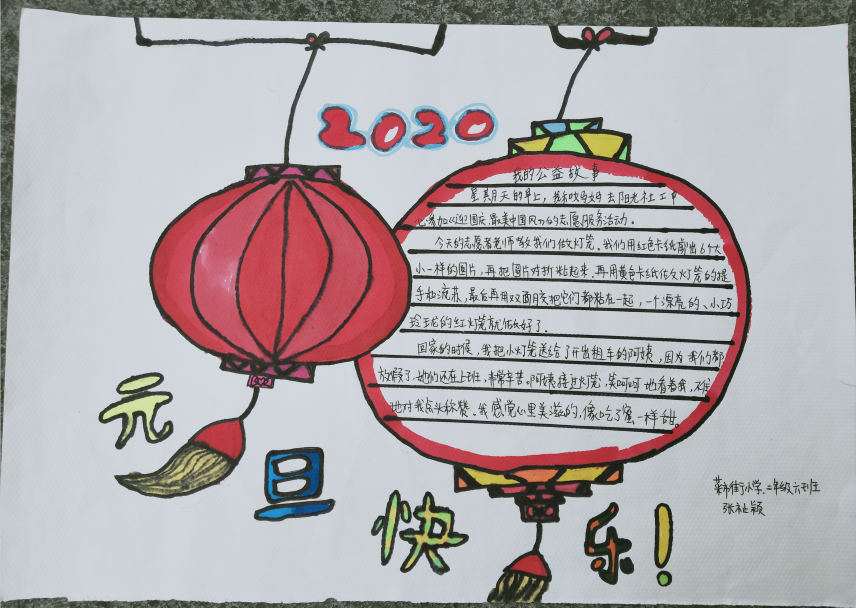 2020
我的公益故事
星期天的早上，我和妈妈去阳光社工中
心参加《迎国庆.最美中国风》的志愿服务活动。
今天的志愿者老师教我们做灯笼。我们用红色卡纸剪出6个大
小一样的图片，再把图片对折粘起来，再用黄色卡纸做灯笼的提
手和流苏，最后再用双面胶把它们都粘在一起，一个漂亮的、小巧
玲珑的红灯笼就做好了。
回家的时候，我把小灯笼送给了开出租车的阿姨，因为我们都
放假了，她们还在上班，非常辛苦。阿姨接过灯笼，笑呵呵地看着我，不停
地对我点头称赞。我感觉心里美滋滋的，像吃了蜜一样甜。
元旦快乐！
街小学.二年级六班
张祉颖